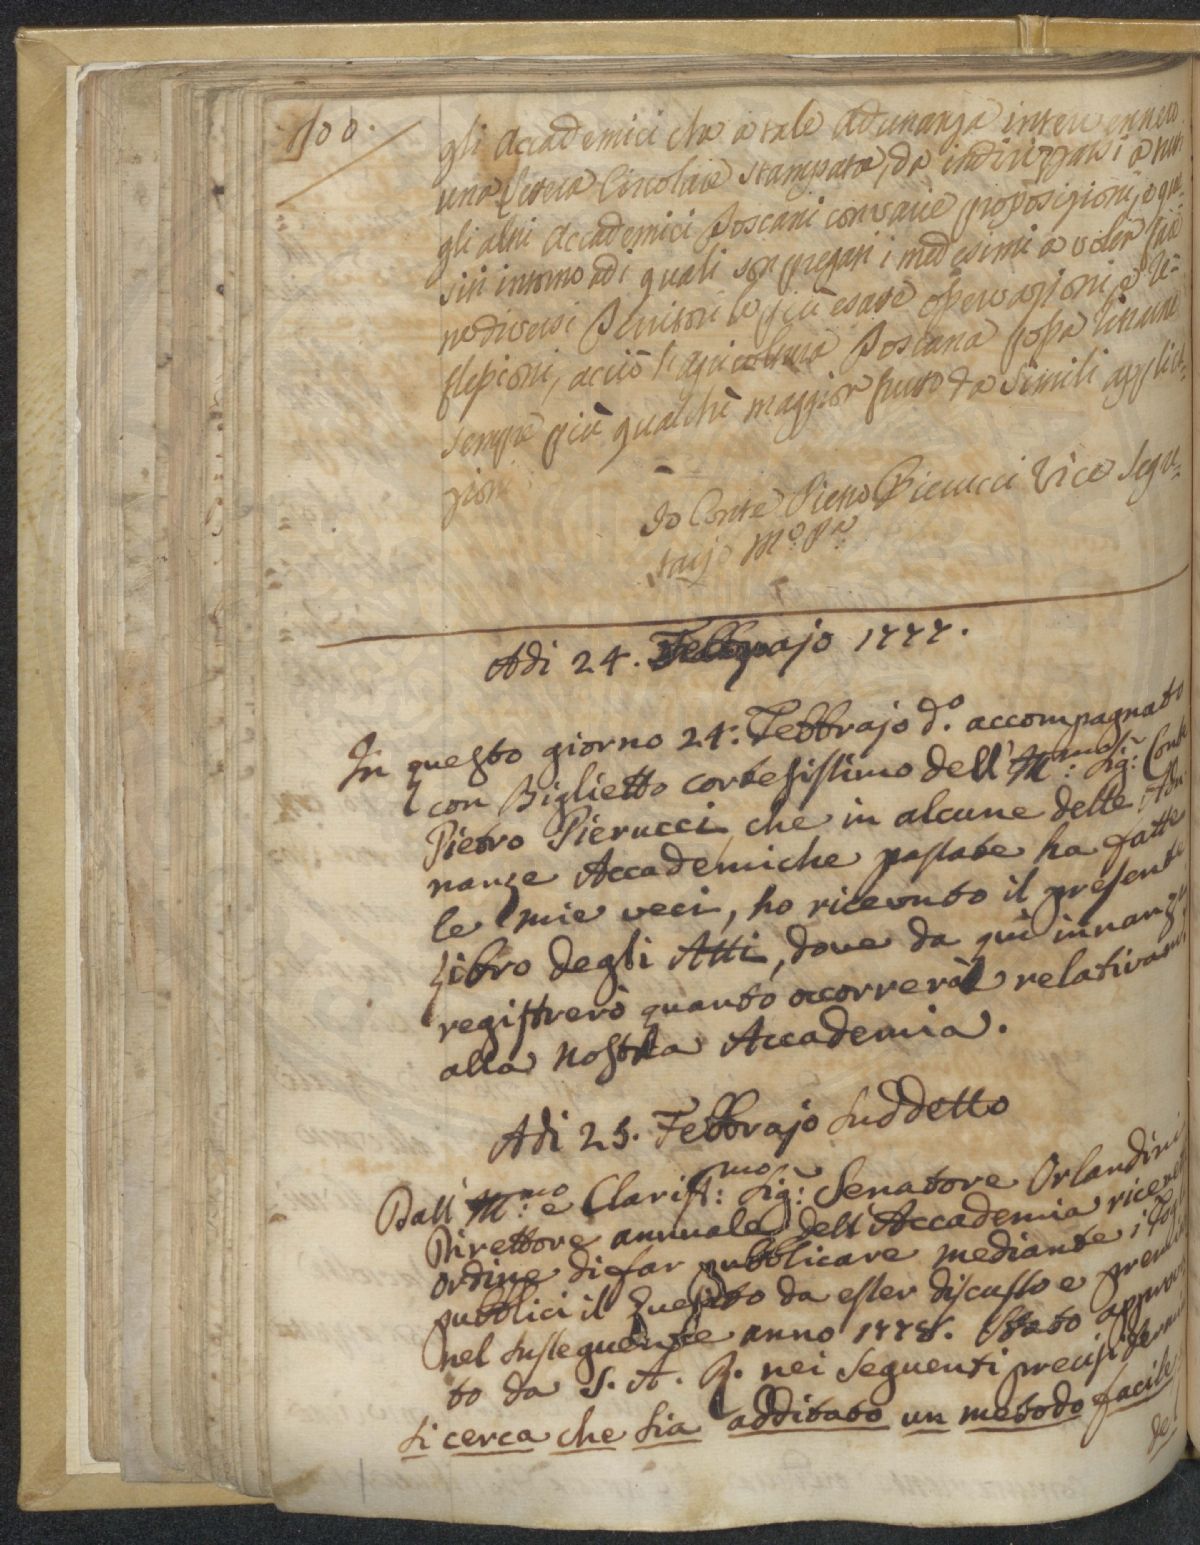 100.
gli Accademici che a tale Adunanza intervennero
una Lettera Circolare stampata, da indirizzarsi a tutti
gli altri Accademici Toscani con varie proposizioni, e que=
siti intorno ai quali son pregati i medesimi a voler fare
ne diversi Territori le più esatte osservazioni e re=
flessioni, acciò l'agricoltura Toscana possa ritrarre
sempre più qualche maggior frutto da simili applica=
zioni
Io Conte Pietro Pierucci Vice Segre=
tario M.o P.a
Adi 24. Febbrajo 1777.
In questo giorno 24: Febbrajo d.o accompagnato
con Biglietto cortesissimo dell' Ill:mo Sig: Conte
Pietro Pierucci, che in alcune delle Adu
nanze Accademiche passate ha fatte
le mie veci, ho ricevuto il presente
Libro degli Atti, dove da quì innanzi
registrerò quanto occorrerà relativam.
alla nostra Accademia.
Adi 25. Febbrajo suddetto
Dall' Ill:mo e Clariss:mo Sig: Senatore Orlandini
Direttore annuale dell' Accademia ricevei
ordine di far pubblicare mediante i Fogli
pubblici il Quesito da esser discusso e premia
nel susseguente anno 1778. Stato approva
to da S. A. R. nei seguenti precisi termi
Si cerca che sia additato un metodo facile
de